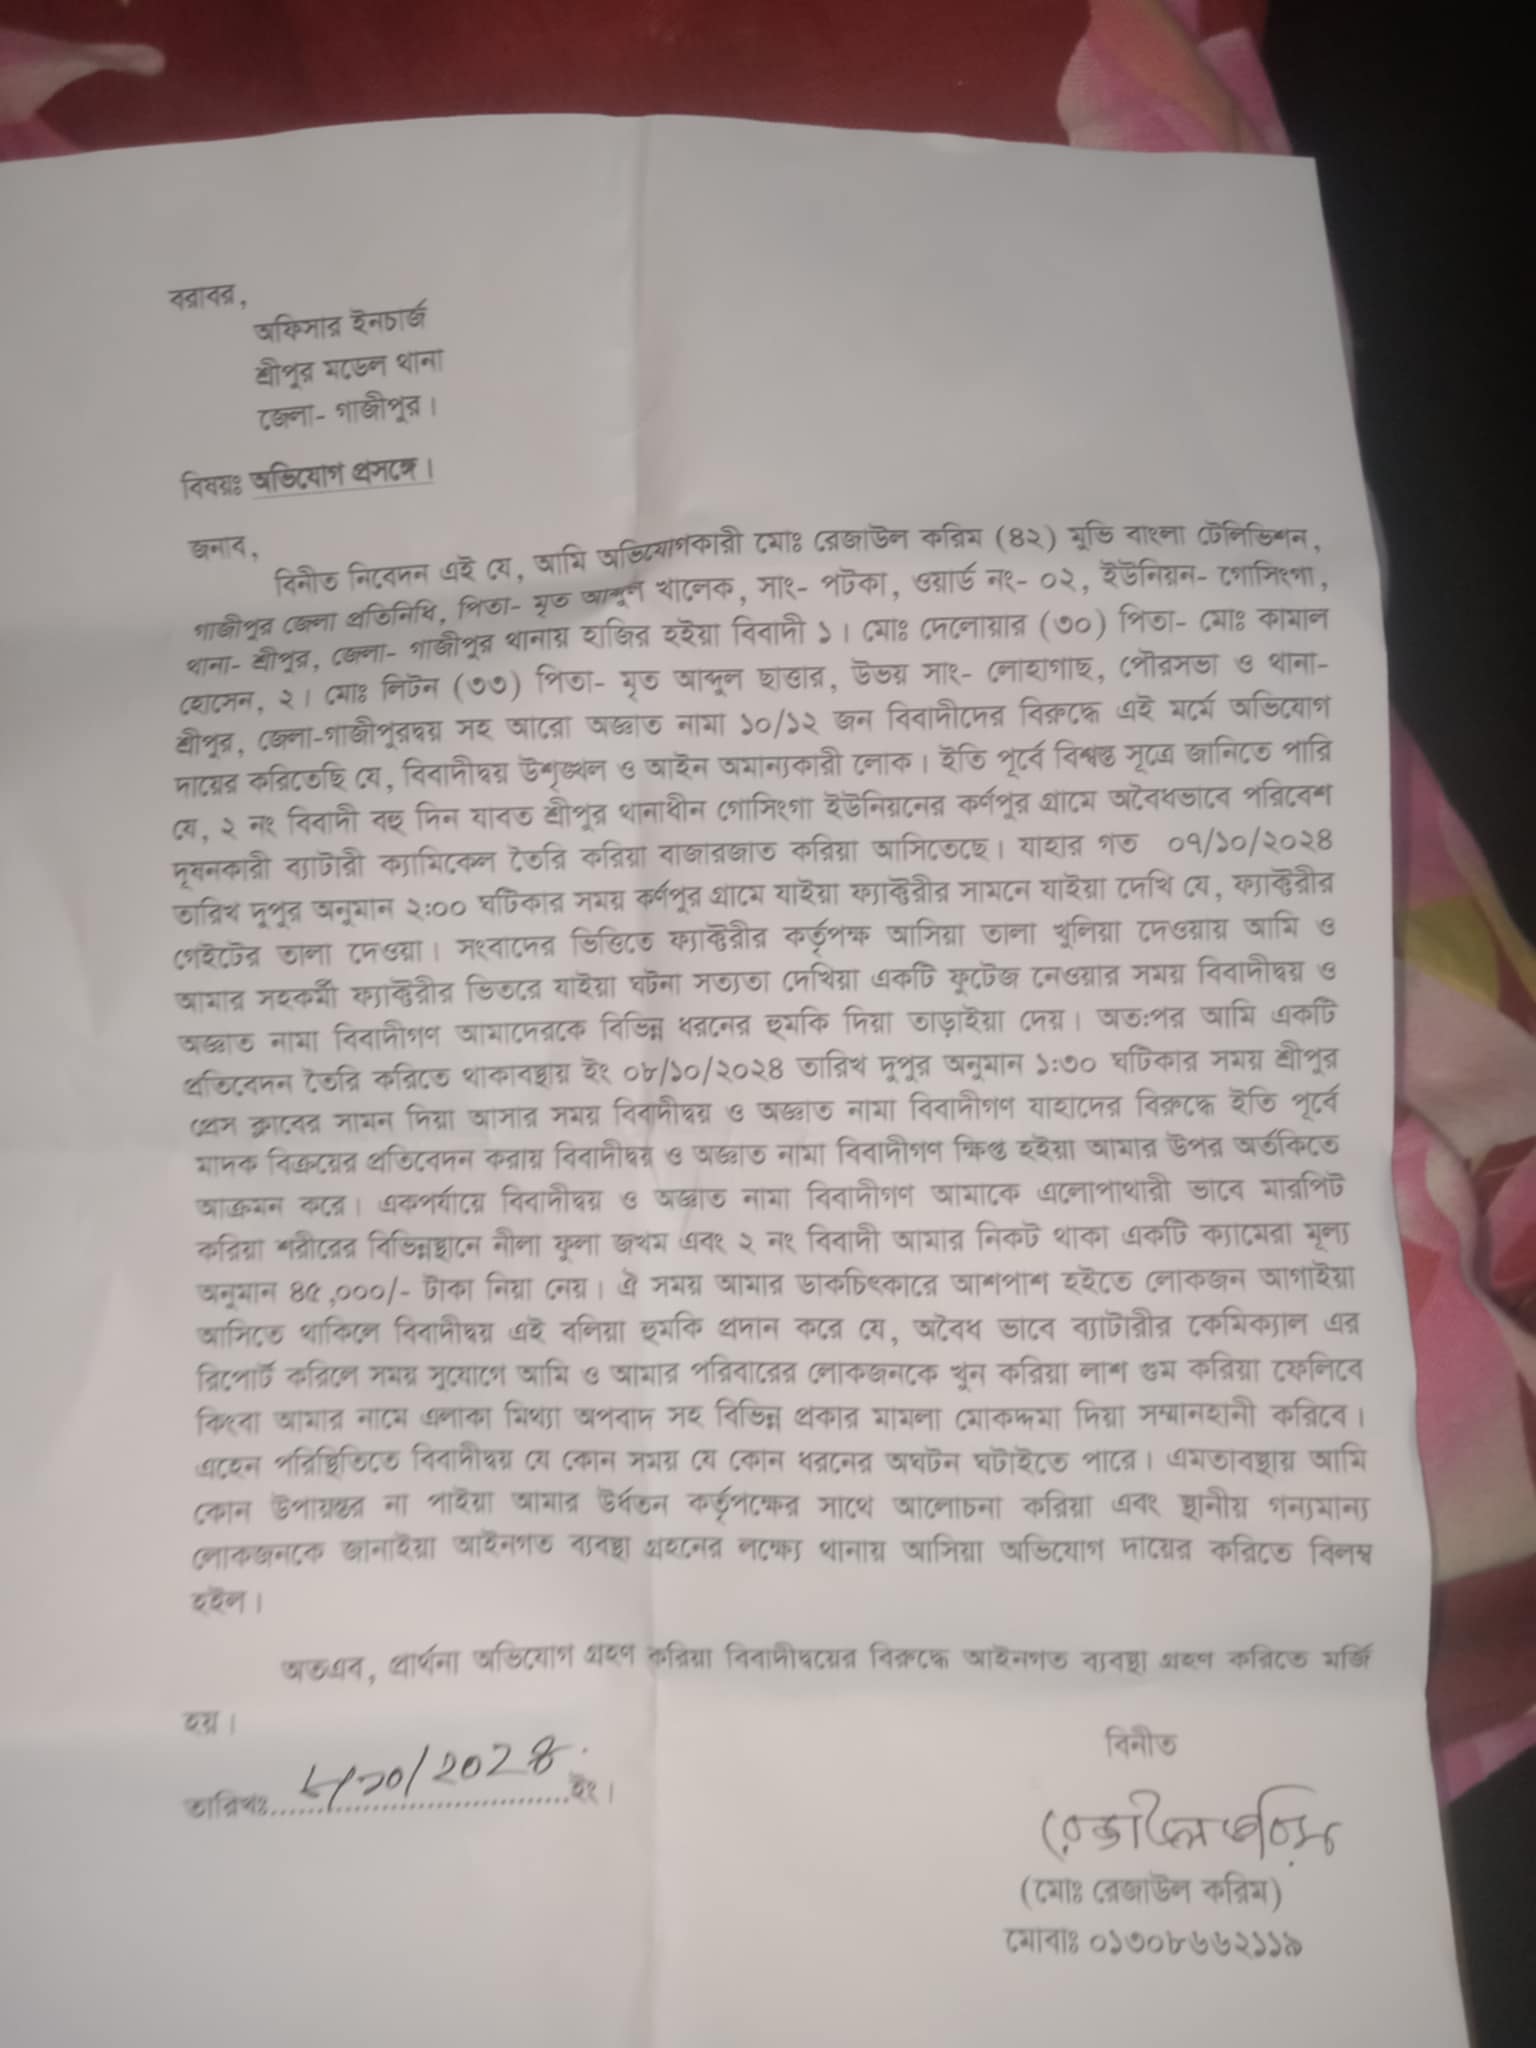 বরাবর,
অফিসার ইনচার্জ
শ্রীপুর মডেল থানা
জেলা- গাজীপুর।
বিষয়ঃ অভিযোগ প্রসঙ্গে।
জনাব,
বিনীত নিবেদন এই যে, আমি অভিযোগকারী মোঃ রেজাউল করিম (৪২) মুভি বাংলা টেলিভিশন,
গাজীপুর জেলা প্রতিনিধি, পিতা- মৃত আব্দুল খালেক, সাং- পটকা, ওয়ার্ড নং- ০২, ইউনিয়ন- গোসিংগা,
থানা- শ্রীপুর, জেলা- গাজীপুর থানায় হাজির হইয়া বিবাদী ১। মোঃ দেলোয়ার (৩০) পিতা- মোঃ কামাল
হোসেন, ২। মোঃ লিটন (৩৩) পিতা- মৃত আব্দুল ছাত্তার, উভয় সাং- লোহাগাছ, পৌরসভা ও থানা-
শ্রীপুর, জেলা-গাজীপুরদ্বয় সহ আরো অজ্ঞাত নামা ১০/১২ জন বিবাদীদের বিরুদ্ধে এই মর্মে অভিযোগ
দায়ের করিতেছি যে, বিবাদীদ্বয় উশৃঙ্খল ও আইন অমান্যকারী লোক। ইতি পূর্বে বিশ্বস্ত সূত্রে জানিতে পারি
যে, ২ নং বিবাদী বহু দিন যাবত শ্রীপুর থানাধীন গোসিংগা ইউনিয়নের কর্ণপুর গ্রামে অবৈধভাবে পরিবেশ
দূষনকারী ব্যাটারী ক্যামিকেল তৈরি করিয়া বাজারজাত করিয়া আসিতেছে। যাহার গত ০৭/১০/২০২৪
তারিখ দুপুর অনুমান ২:০০ ঘটিকার সময় কর্ণপুর গ্রামে যাইয়া ফ্যাক্টরীর সামনে যাইয়া দেখি যে, ফ্যাক্টরীর
গেইটের তালা দেওয়া। সংবাদের ভিত্তিতে ফ্যাক্টরীর কর্তৃপক্ষ আসিয়া তালা খুলিয়া দেওয়ায় আমি ও
আমার সহকর্মী ফ্যাক্টরীর ভিতরে যাইয়া ঘটনা সত্যতা দেখিয়া একটি ফুটেজ নেওয়ার সময় বিবাদীদ্বয় ও
অজ্ঞাত নামা বিবাদীগণ আমাদেরকে বিভিন্ন ধরনের হুমকি দিয়া তাড়াইয়া দেয়। অত:পর আমি একটি
প্রতিবেদন তৈরি করিতে থাকাবস্থায় ইং ০৮/১০/২০২৪ তারিখ দুপুর অনুমান ১:৩০ ঘটিকার সময় শ্রীপুর
প্রেস ক্লাবের সামন দিয়া আসার সময় বিবাদীদ্বয় ও অজ্ঞাত নামা বিবাদীগণ যাহাদের বিরুদ্ধে ইতি পূর্বে
মাদক বিক্রয়ের প্রতিবেদন করায় বিবাদীদ্বয় ও অজ্ঞাত নামা বিবাদীগণ ক্ষিপ্ত হইয়া আমার উপর অর্তকিতে
আক্রমন করে। একপর্যায়ে বিবাদীদ্বয় ও অজ্ঞাত নামা বিবাদীগণ আমাকে এলোপাথারী ভাবে মারপিট
করিয়া শরীরের বিভিন্নস্থানে নীলা ফুলা জখম এবং ২ নং বিবাদী আমার নিকট থাকা একটি ক্যামেরা মূল্য
অনুমান ৪৫,০০০/- টাকা নিয়া নেয়। ঐ সময় আমার ডাকচিৎকারে আশপাশ হইতে লোকজন আগাইয়া
আসিতে থাকিলে বিবাদীদ্বয় এই বলিয়া হুমকি প্রদান করে যে, অবৈধ ভাবে ব্যাটারীর কেমিক্যাল এর
রিপোর্ট করিলে সময় সুযোগে আমি ও আমার পরিবারের লোকজনকে খুন করিয়া লাশ গুম করিয়া ফেলিবে
কিংবা আমার নামে এলাকা মিথ্যা অপবাদ সহ বিভিন্ন প্রকার মামলা মোকদ্দমা দিয়া সম্মানহানী করিবে।
এহেন পরিস্থিতিতে বিবাদীদ্বয় যে কোন সময় যে কোন ধরনের অঘটন ঘটাইতে পারে। এমতাবস্থায় আমি
কোন উপায়ন্তর না পাইয়া আমার উর্ধতন কর্তৃপক্ষের সাথে আলোচনা করিয়া এবং স্থানীয় গন্যমান্য
লোকজনকে জানাইয়া আইনগত ব্যবস্থা গ্রহনের লক্ষ্যে থানায় আসিয়া অভিযোগ দায়ের করিতে বিলম্ব
হইল।
অতএব, প্রার্থনা অভিযোগ গ্রহণ করিয়া বিবাদীদ্বয়ের বিরুদ্ধে আইনগত ব্যবস্থা গ্রহণ করিতে মর্জি
হয়।
বিনীত
তারিখঃ ৮/১০/২০২৪ ইং।
রেজাউল করিম
(মোঃ রেজাউল করিম)
মোবাঃ ০১৩০৮৬৬২১১৯